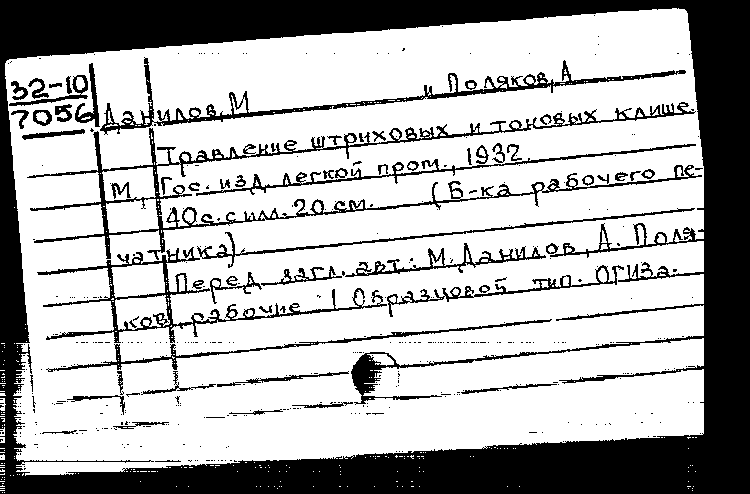 32-10
7056
Данилов, М и Поляков, А
Травление штриховых и тоновых клише.
М., Гос. изд. легкой пром., 1932.
40 с. с илл. 20 см. (Б-ка рабочего пе-
чатника).
Перед загл. авт.: М. Данилов, А. Поля-
ков, рабочие 1 Образцовой тип. ОГИЗа.